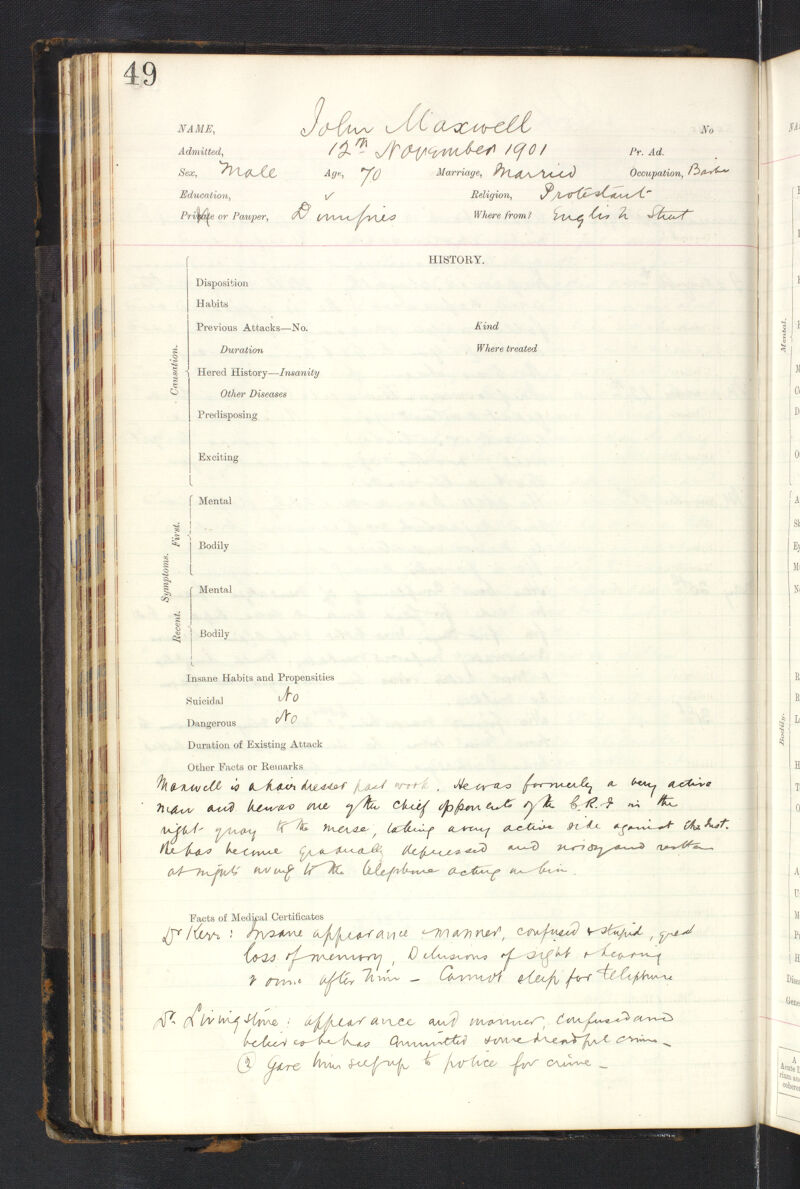 49
NAME, John Maxwell No
Admitted, 12th November 1901 Pr. Ad.
Sex, Male Age, 70 Marriage, Married Occupation, Barber
Education, ✓ Religion, Protestant
Private or Pauper, Dumfries Where from? English Street
HISTORY.
Disposition
Habits
Previous Attacks—No. Kind
Duration Where treated
Causation.
Hered History—Insanity
Other Diseases
Predisposing
Exciting
Symptoms. First.
Mental
Bodily
Recent.
Mental
Bodily
Insane Habits and Propensities
Suicidal No
Dangerous No
Duration of Existing Attack
Other Facts or Remarks
Maxwell is a hairdresser past work. He was formerly a very active
man and he was one of the chief opponents of the C.R.I in the
right of way to the merse, taking a very active side against the Inst.
He has become gradually depressed and noisy and restless
at nights owing to the telephone acting on him.
Facts of Medical Certificates
Dr Kerr: Insane appearance manner, confused & stupid, great
loss of memory, Delusions of sight & hearing
after him – Cannot sleep for telephone
Dr Livingstone: appearance and manner, confused and
believes he has committed some dreadful crime –
(2) Gave himself up to police for crime –
Mental.
Bodily.